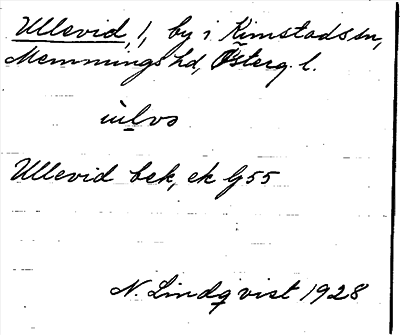 Ullevid, 1, by i Kimstads sn,
Memmings hd, Österg. l.
ùlvs
Ullevid bek, ek G 55
N. Lindqvist 1928